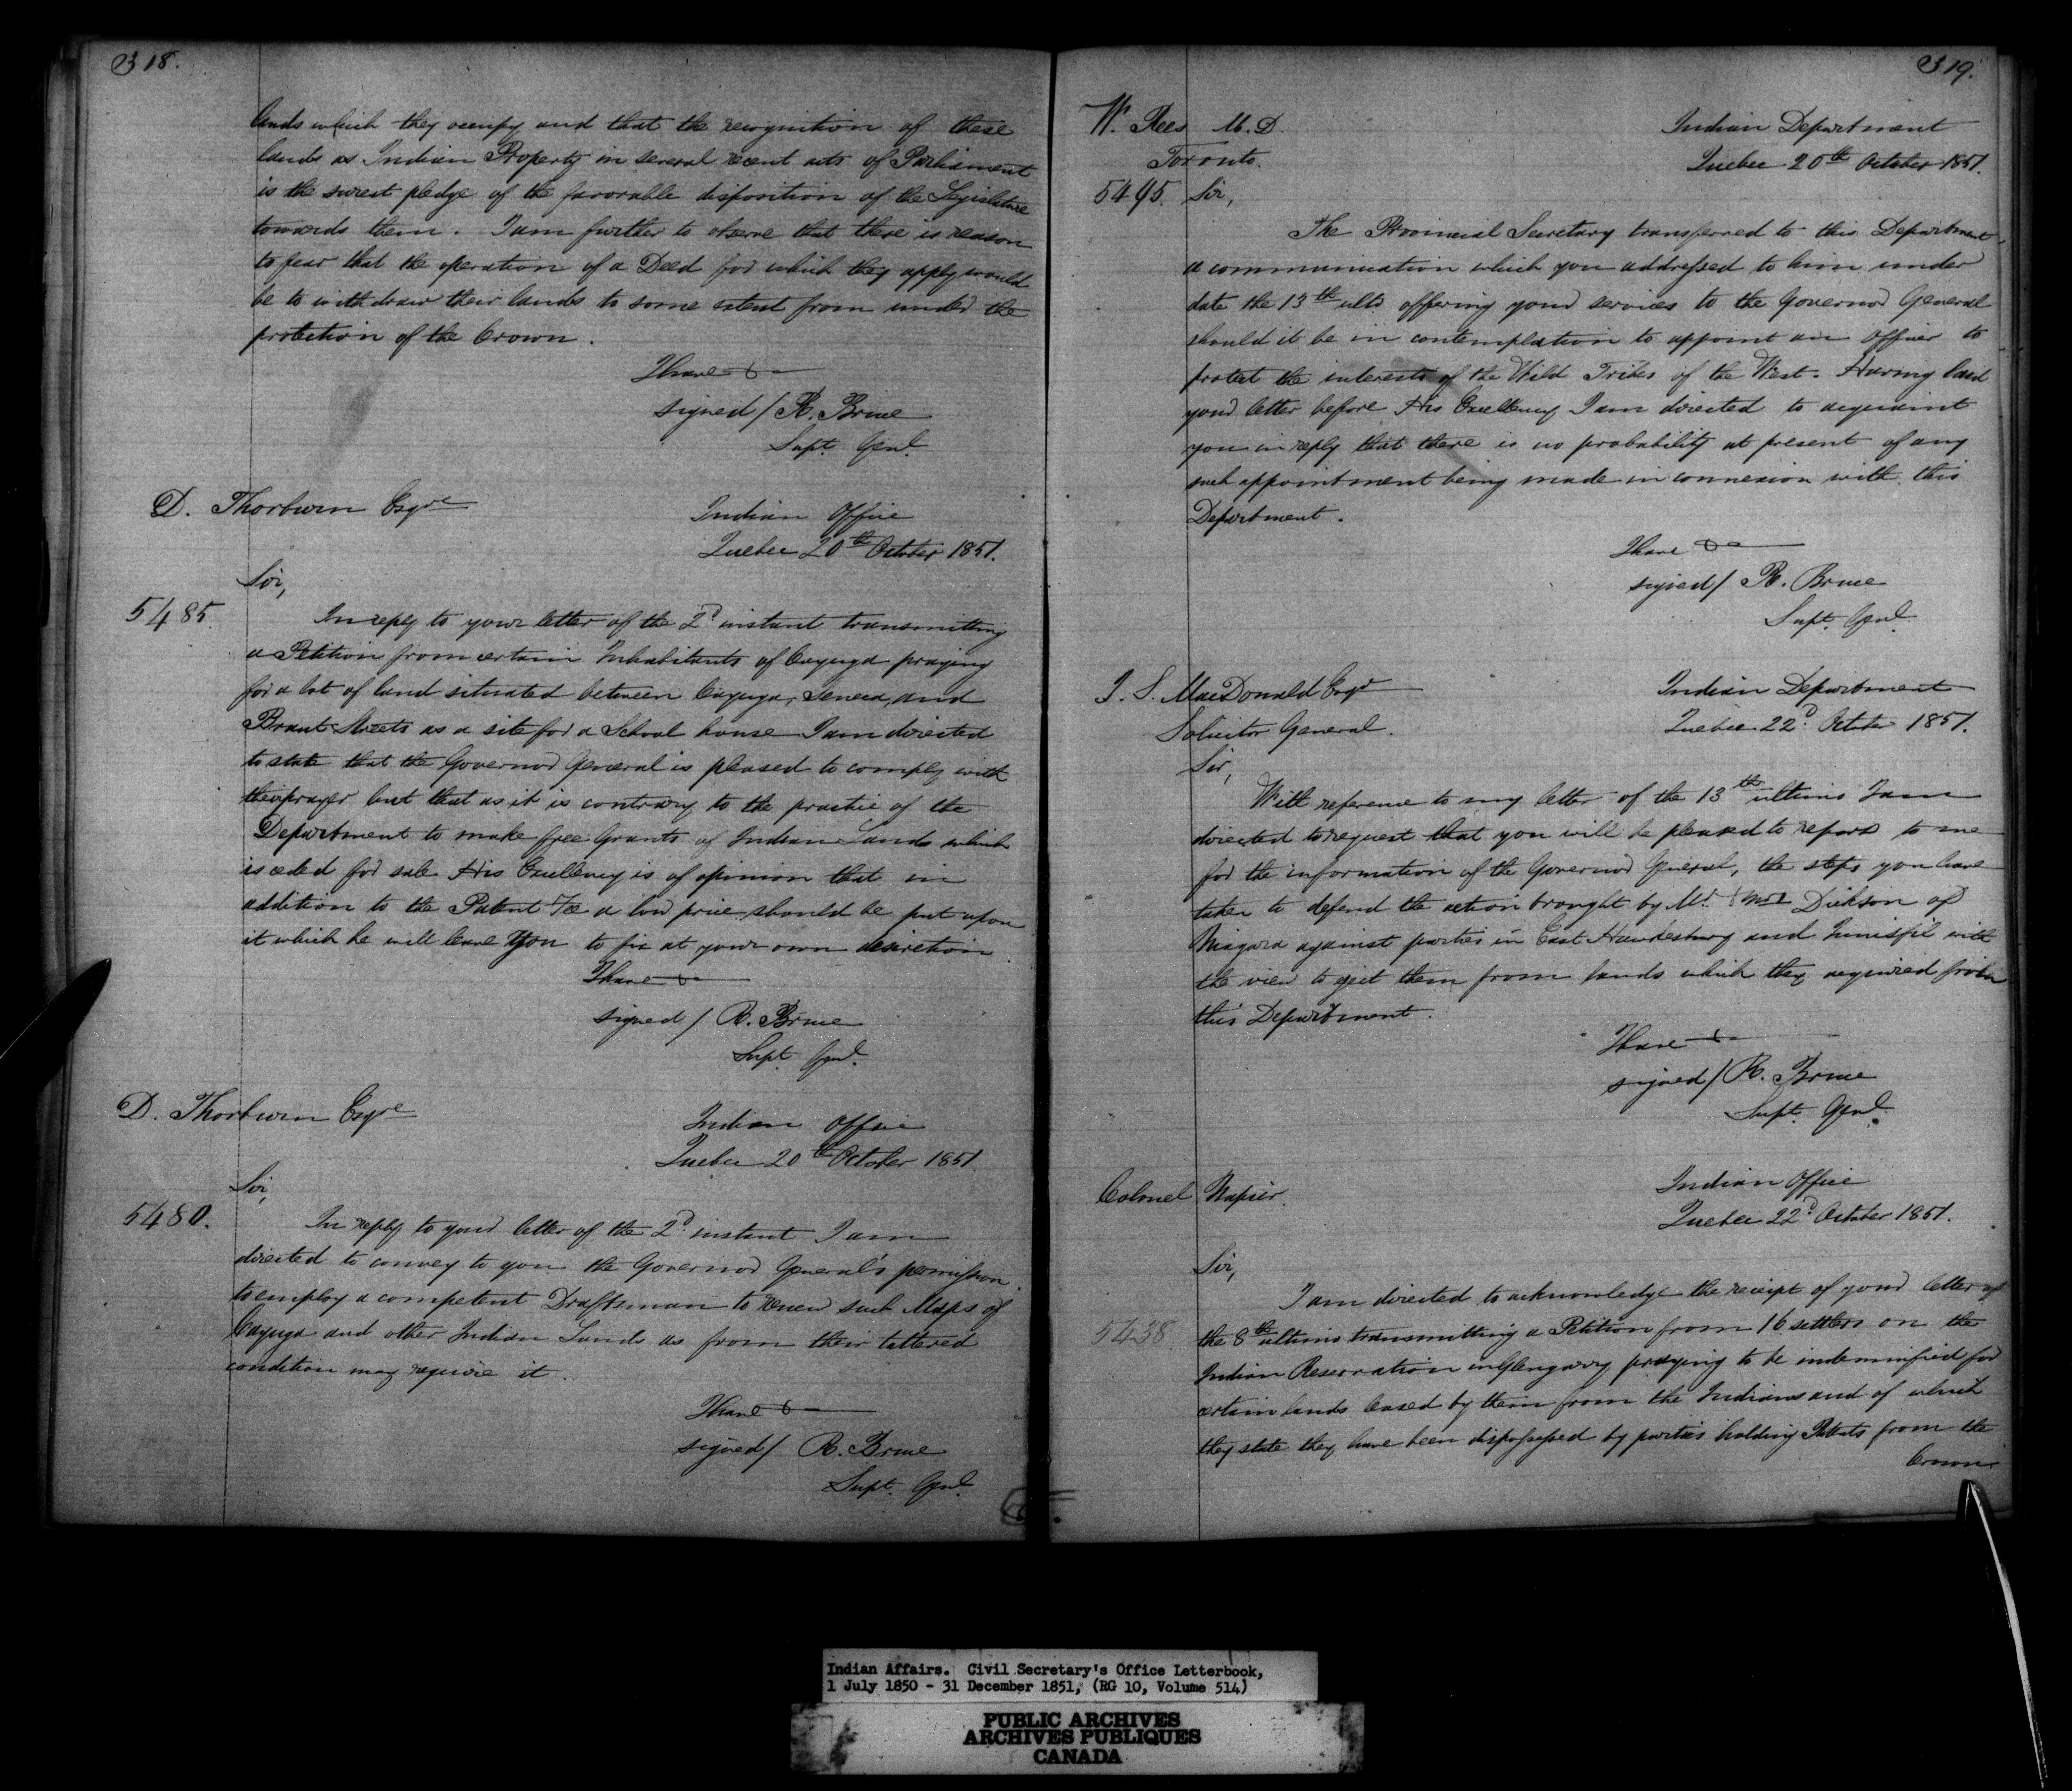 318.
lands which they occupy and that the recognition of these
lands as Indian Property in several recent acts of Parliament
is the surest pledge of the favorable disposition of the Legislature
towards them. I am further to observe that there is reason
to fear that the operation of a Deed for which they apply would
be to withdraw their lands to some extent from under the
protection of the Crown.
I have &
signed / R. Bruce
Supt. Genl.
D. Thorburn Esqre
Indian Office
Quebec 20th October 1851.
Sir,
5485.
In reply to your letter of the 2d instant transmitting
a Petition from certain Inhabitants of Cayuga praying
for a lot of land situated between Cayuga, Seneca, and
Brant Streets as a site for a School house I am directed
to state that the Governor General is pleased to comply with
their prayer but that as it is contrary to the practice of the
Department to make free Grants of Indian Lands which
is ceded for sale His Excellency is of opinion that in
addition to the Patent Fee a low price should be put upon
it which he will leave you to fix at your own desicretion
I have &
signed / R. Bruce
Supt. Genl.
D. Thorburn Esqre
Indian Office
Quebec 20th October 1851.
Sir,
5480.
In reply to your letter of the 2d instant I am
directed to convey to you the Governor General's permission
to employ a competent Draftsman to renew such Maps of
Cayuga and other Indian Lands as from their tattered
condition may require it.
I have &
signed / R. Bruce
Supt. Genl.
319.
W. Rees M.D.
Toronto.
Indian Department
Quebec 20th October 1851.
5495. Sir,
The Provincial Secretary transferred to this Department
a communication which you addressed to him under
date the 13th ulto offering your services to the Governor General
should it be in contemplation to appoint an Officer to
protect the interests of the Wild Tribes of the West. Having laid
your letter before His Excellency I am directed to acquaint
you in reply that there is no probability at present of any
such appointment being made in connexion with this
Department.
I have &
signed / R. Bruce
Supt. Genl.
J. S. MacDonald Esqr
Solicitor General.
Indian Department
Quebec 22d October 1851.
Sir,
With reference to my letter of the 13th ultimo I am
directed to request that you will be pleased to report to me
for the information of the Governor General, the steps you have
taken to defend the action brought by Mr. & Mrs Dickson of
Niagara against parties in East Hawkesbury and Innisfil with
the view to eject them from lands which they acquired from
this Department.
I have &
signed / R. Bruce
Supt. Genl.
Colonel Napier.
Indian Office
Quebec 22d October 1851.
Sir,
5438
I am directed to acknowledge the receipt of your letter of
the 8th ultimo transmitting a Petition from 16 settlers on the
Indian Reservation in Glengarry praying to be indemnified for
certain lands leased by them from the Indians and of which
they state they have been dispossessed by parties holding Patents from the
Crown
Indian Affairs. Civil Secretary's Office Letterbook,
1 July 1850 - 31 December 1851, (RG 10, Volume 514)
PUBLIC ARCHIVES
ARCHIVES PUBLIQUES
CANADA